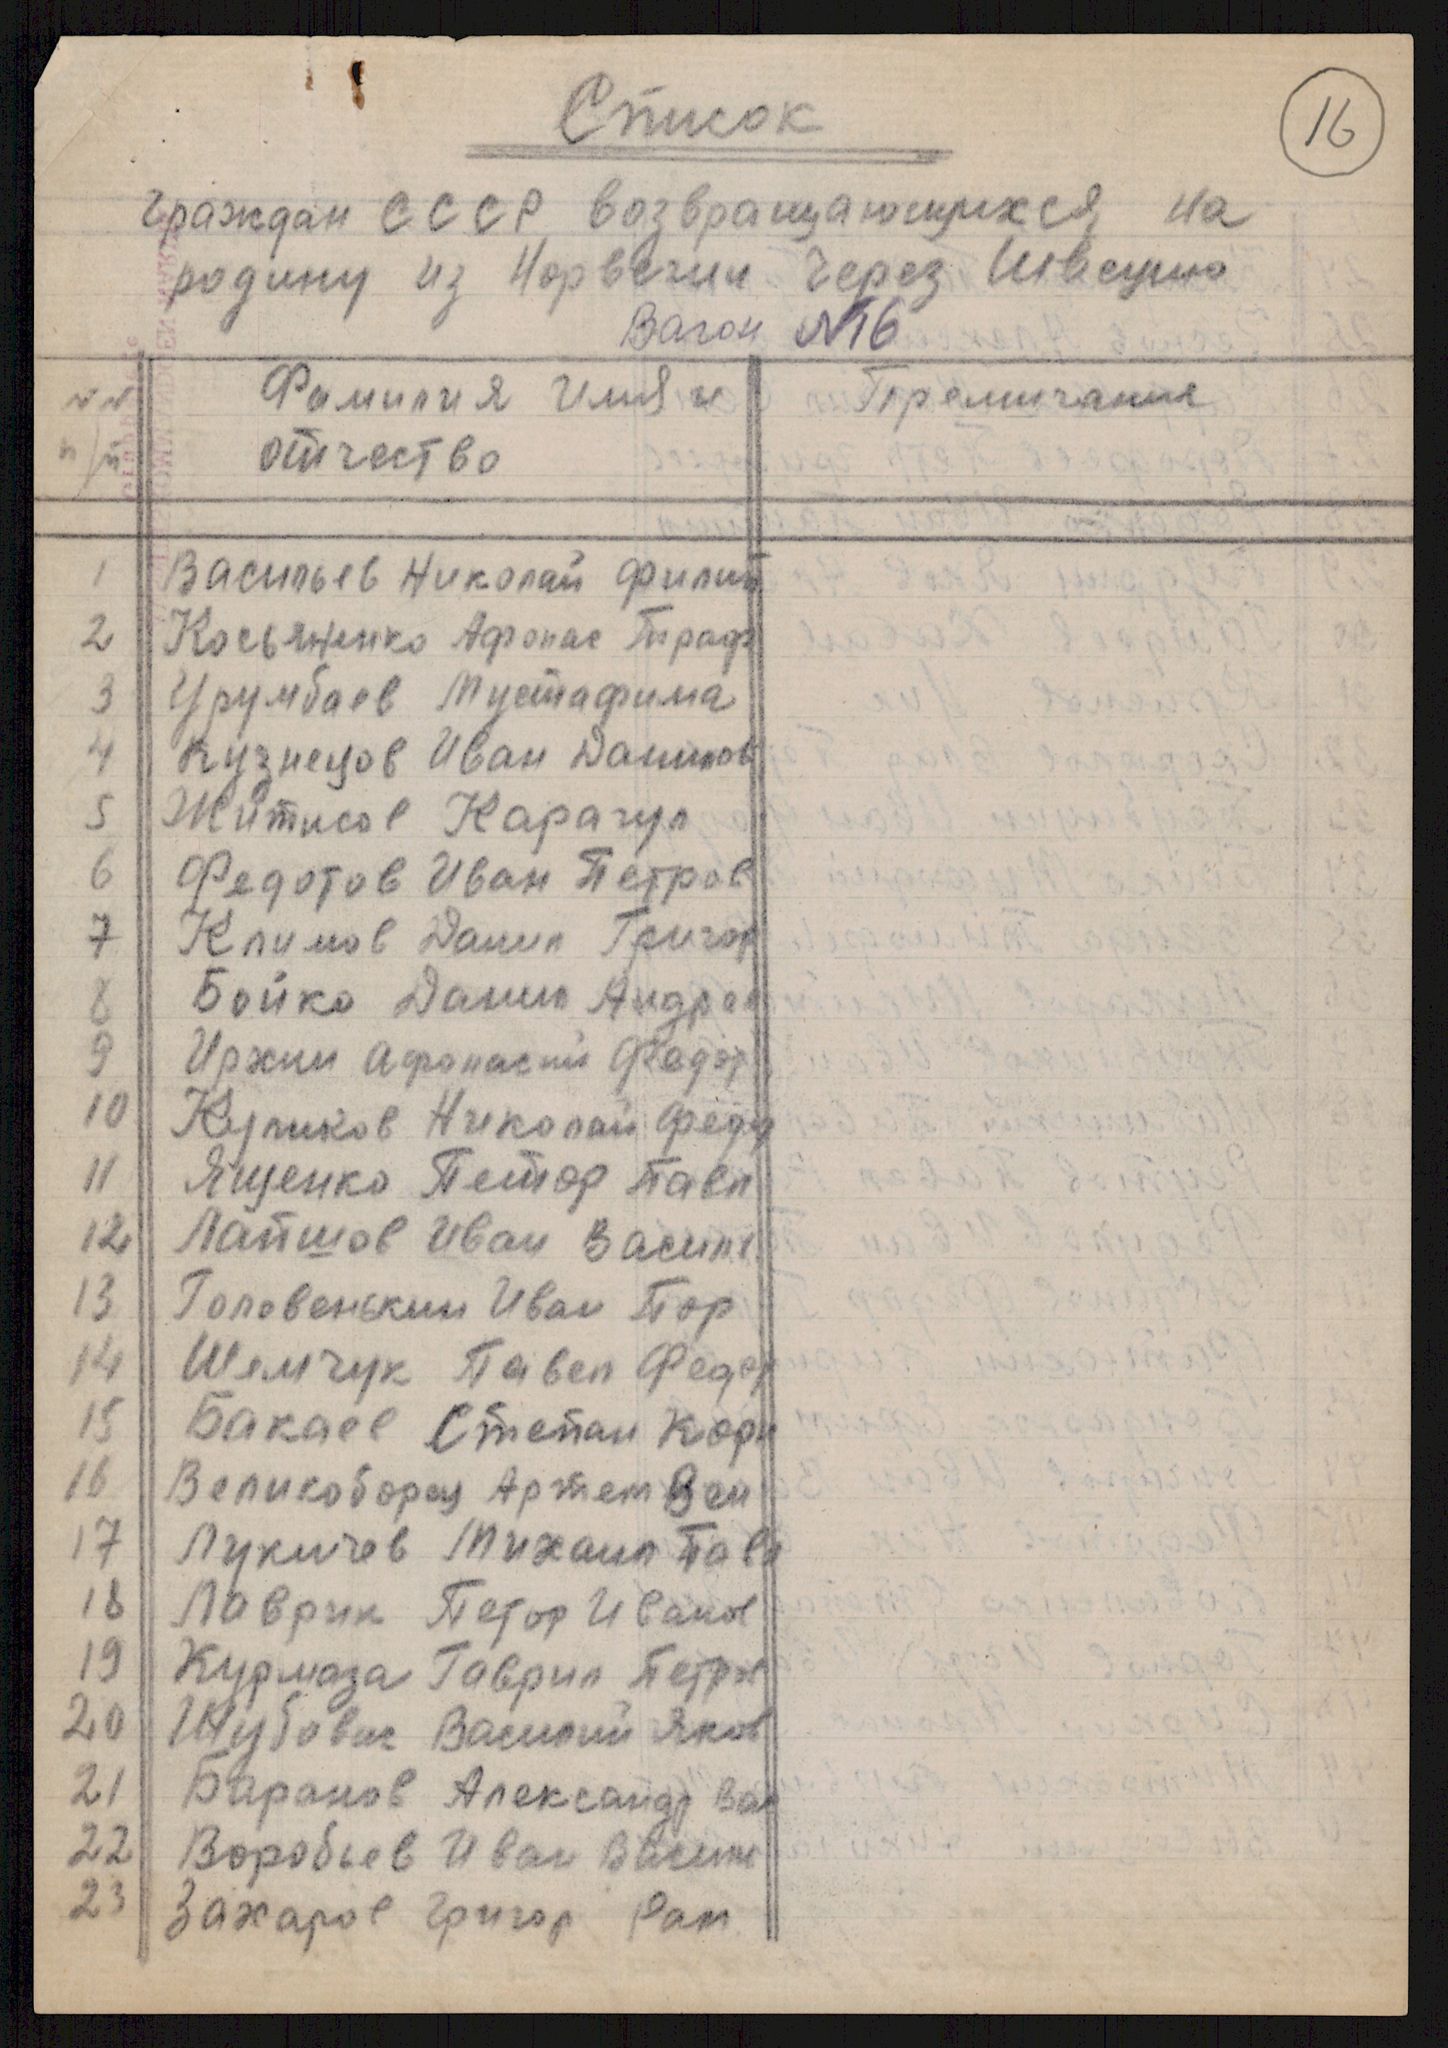 16
Список
граждан СССР возвращающихся на
родину из Норвегии через Швецию
Вагон №16
№№ п/п Фамилия Имя и Премичания
отчество
1 Васильев Николай Филип
2 Косьяненко Афонас Траф
3 Урумбаев Мустафима
4 Кузнецов Иван Данилов
5 Житисов Карагул
6 Федотов Иван Петров
7 Климов Данил Григор
8 Бойко Данил Андре
9 Иржин Афонасий Федор
10 Куликов Николай Федо
11 Ященко Петор Павл
12 Лапшов Иван Василь
13 Головенькин Иван Пор
14 Шемчук Павел Федор
15 Бакаев Степан Корн
16 Великоборец Артем
17 Лукичев Михаил Павл
18 Лаврик Петор Иванов
19 Курмаза Гаврил Петро
20 Василий Яков
21 Баранов Александр Вас
22 Воробьев Иван Василь
23 Захаров Григор Ром